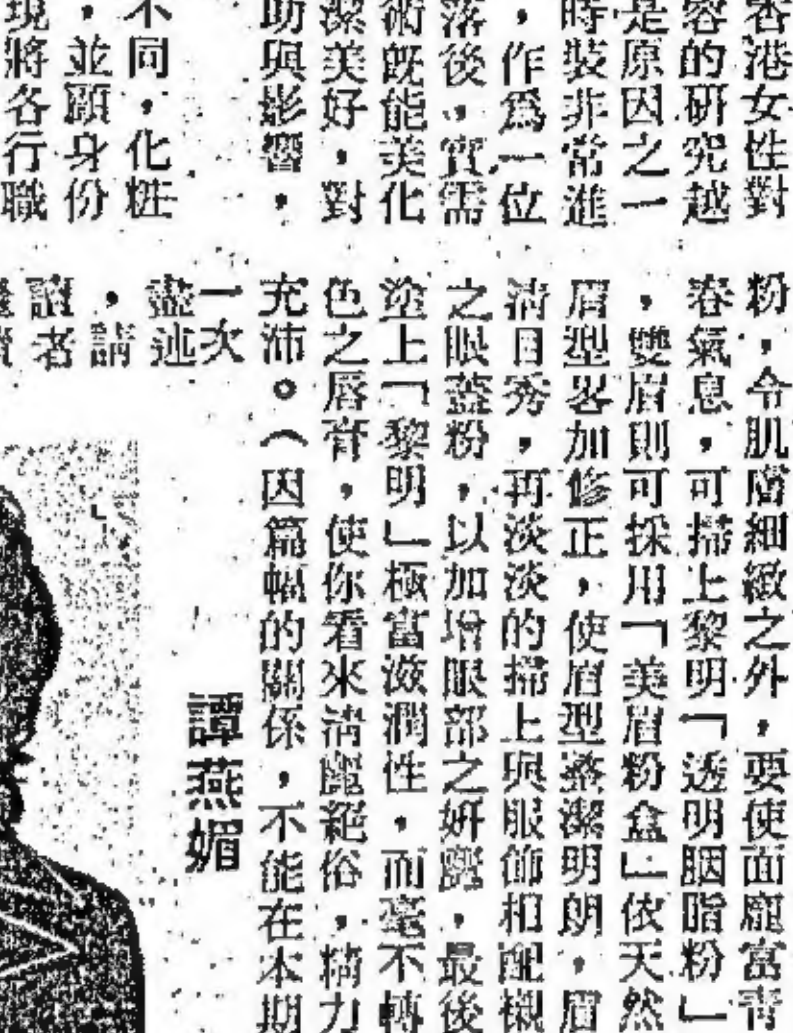 香港女性對
容的研究越
是原因之一
時裝非常進
，作爲一位
落後，實需
術既能美化
潔美好，對
助與影響，
不同，化粧
，並顧身份
現將各行職
粉，令肌膚細緻之外，要使面龐富青
春氣息，可掃上黎明「透明胭脂粉」
，雙眉則可採用「美眉粉盒」依天然
眉型畧加修正，使眉型整潔明朗，眉
清目秀，再淡淡的掃上與服飾相配襯
之眼蓋粉，以加增眼部之妍麗，最後
塗上「黎明」極富滋潤性，而毫不轉
色之唇膏，使你看來清麗絕俗，精力
充沛。（因篇幅的關係，不能在本期
一次
盡述
，請
讀者
譚燕媚